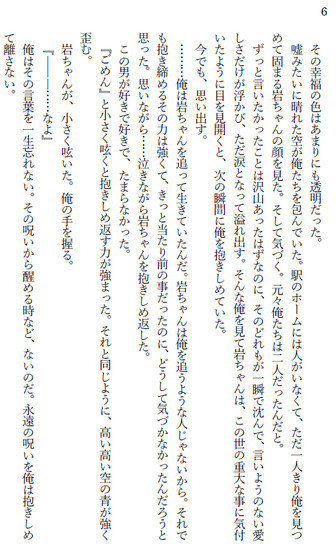 6
その幸福の色はあまりにも透明だった。
嘘みたいに晴れた空が俺たちを包んでいた。駅のホームには人がいなくて、ただ一人きり俺を見つ
めて固まる岩ちゃんの顔を見た。そして気づく。元々俺たちは二人だったんだと。
ずっと言いたかったことは沢山あったはずなのに、そのどれもが一瞬で沈んで、言いようのない愛
しさだけが浮かび、ただ涙となって溢れ出す。そんな俺を見て岩ちゃんは、この世の重大な事に気付
いたように目を見開くと、次の瞬間に俺を抱きしめていた。
今でも、思い出す。
………俺は岩ちゃんを追って生きていたんだ。岩ちゃんは俺を追うような人じゃないから。それで
も抱き締めるその力は強くて、きっと当たり前の事だったのに、どうして気づかなかったんだろうと
思った。思いながら……泣きながら岩ちゃんを抱きしめ返した。
この男が好きで好きで、たまらなかった。
『ごめん』と小さく呟くと抱きしめ返す力が強まった。それと同じように、高い高い空の青が強く
歪む。
岩ちゃんが、小さく呟いた。俺の手を握る。
『――………なよ』
俺はその言葉を一生忘れない。その呪いから醒める時など、ないのだ。永遠の呪いを俺は抱きしめ
て離さない。